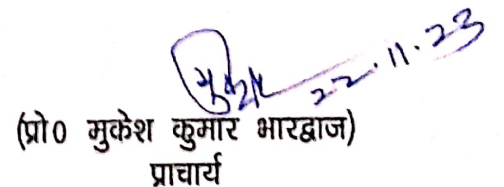 22.11.23
(प्रो० मुकेश कुमार भारद्वाज)
प्राचार्य